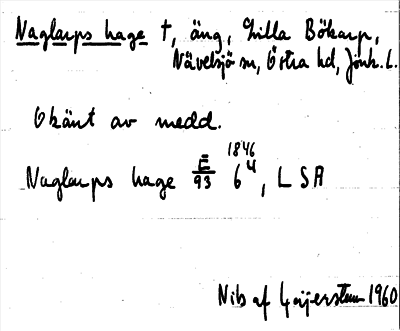 Naglarps hage †, äng, Lilla Bökarp,
Nävelsjö sn, Östra hd, Jönk. L.
Okänt av medd.
1846
Naglarps hage E/93 6⁴, LSA
Nils af Geijerstam 1960